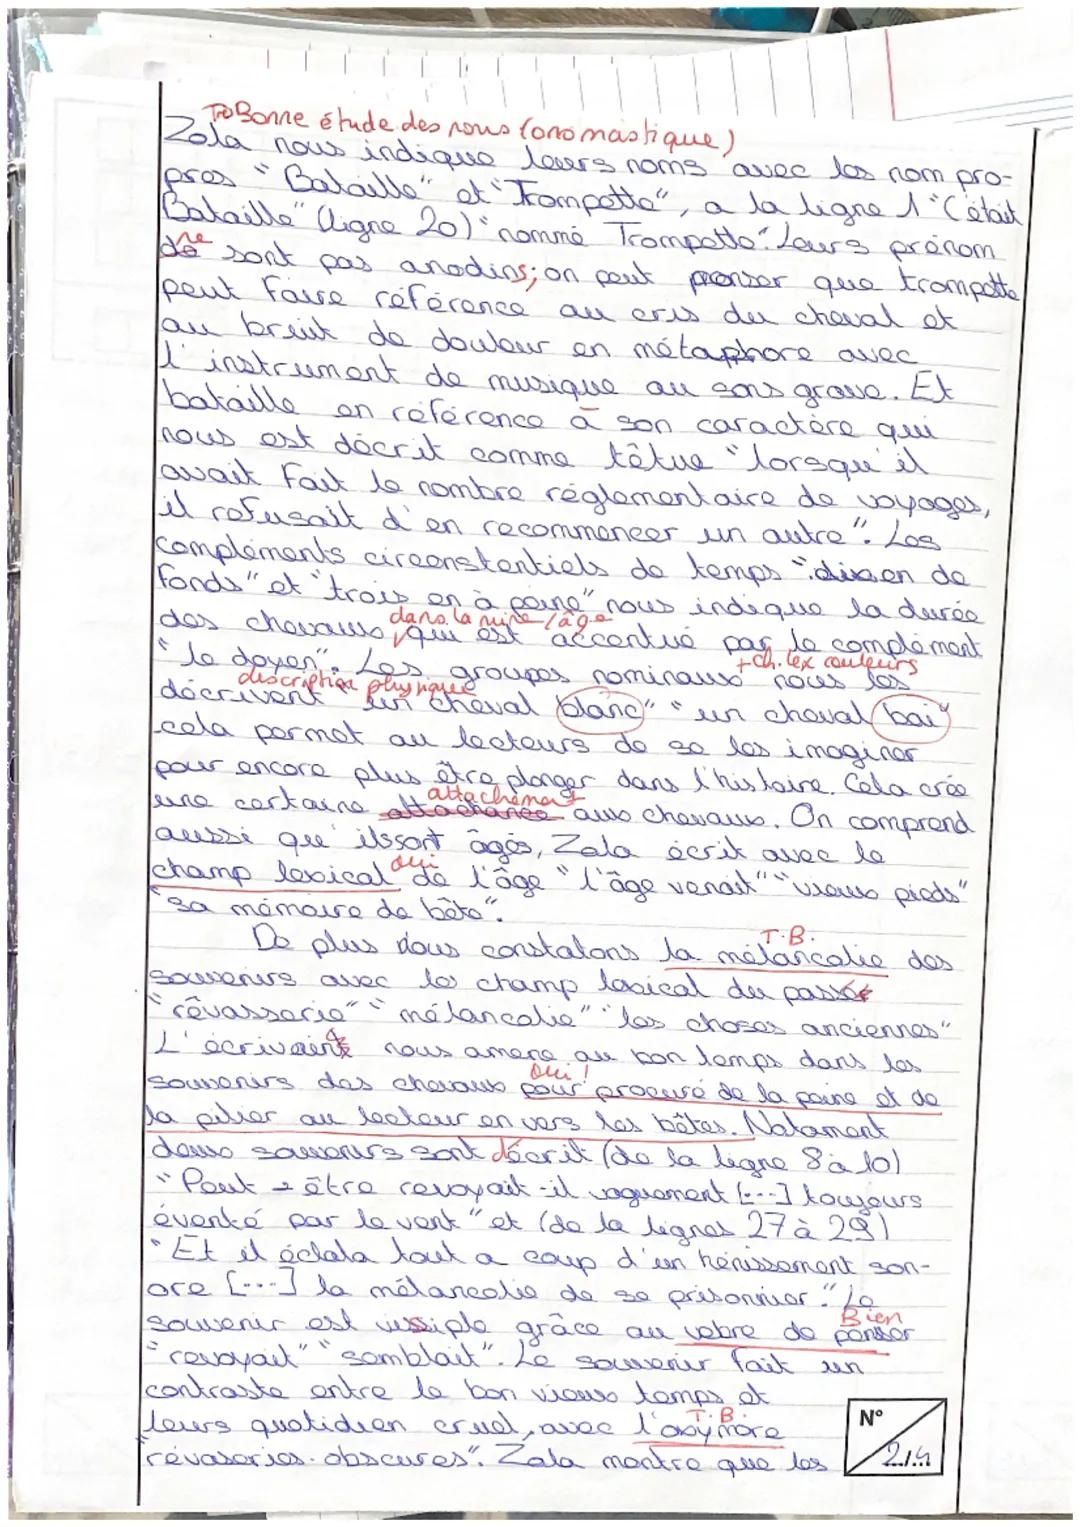 TB Bonne étude des noms (onomastique)
Zola nous indique leurs noms avec les nom pro-
pres "Bataille" et "Trompette", a la ligne 1 "C'était
Bataille" (ligne 20) "nommé Trompette". Leurs prénom
ne
de sont pas anodins; on peut penser que trompette
peut faire référence au cris du cheval et
au bruit de douleur en métaphore avec
l'instrument de musique au sons grave. Et
bataille en référence à son caractère qui
nous est décrit comme têtue "lorsqu'il
avait fait le nombre réglementaire de voyages,
il refusait d'en recommencer un autre". Les
compléments circonstentiels de temps "dix en de
fonds" et "trois en à peine" nous indique la durée
dans la mine / âge
des chevaux, qui est accentué par le complément
+ ch. lex couleurs
"le doyen". Les groupes nominaux nous les
description physique
décrivent "un cheval blanc" "un cheval bai"
cela permet au lecteurs de se les imaginer
pour encore plus être plonger dans l'histoire. Cela crée
attachement
une certaine attachance aux chevaux. On comprend
aussi que ilssont âgés, Zola écrit avec le
oui
champ lexical de l'âge "l'âge venait" "vieux pieds"
"sa mémoire de bête".
T.B.
De plus nous constatons la mélancolie des
souvenirs avec le champ lexical du passé
"rêvasserie" "mélancolie" "les choses anciennes"
L'écrivain nous amene au bon temps dans les
Oui !
souvenirs des chevaux pour procuré de la peine et de
la pitier au lecteur en vers les bêtes. Notament
deux souvenirs sont décrit (de la ligne 8 à 10)
"Peut-être revoyait-il vaguement [...] toujours
éventé par le vent" et (de la lignes 27 à 29)
"Et il éclata tout a coup d'un hénissement son-
ore [...] la mélancolie de se prisonnier." Le
Bien
souvenir est visiple grâce au vebre de penser
"revoyait" "semblait". Le souvenir fait un
contraste entre le bon vieux temps et
T.B.
leurs quotidien cruel, avec l'oxymore
"rêvaseries obscures". Zola montre que les
N°
2/4